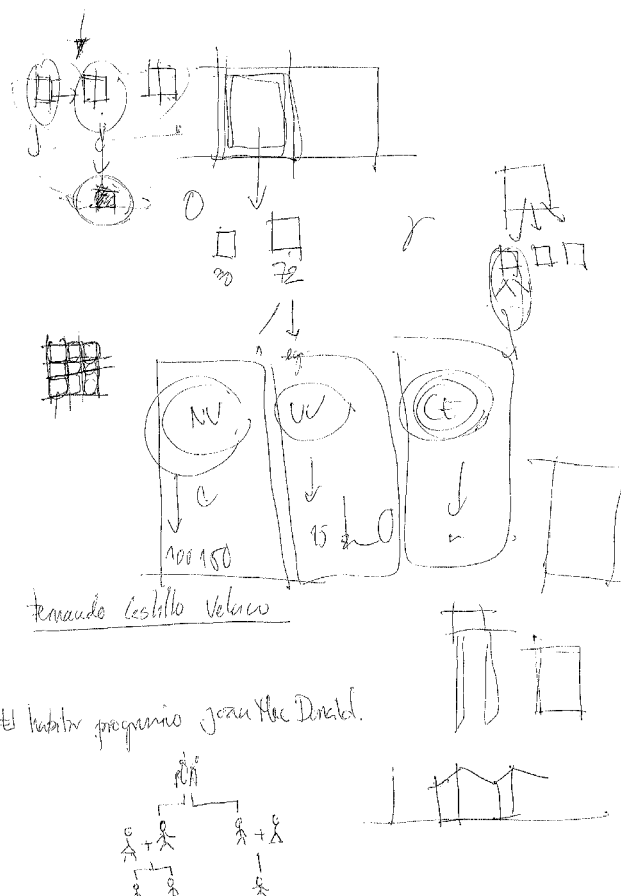 30 72
NV UV CE
100 150 15
Fernando Castillo Velasco
El habitar progresivo Joan Mac Donald.